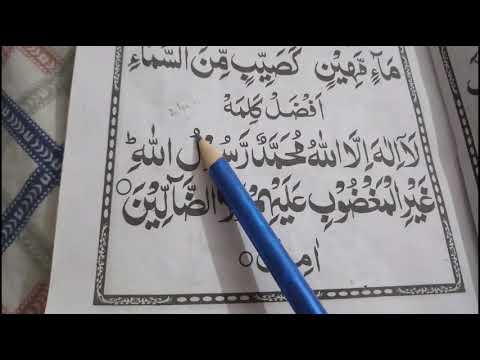 مَآءٍ مَّهِيْنٍ كَصَيِّبٍ مِّنَ السَّمَآءِ
اَفْضَلُ كَلِمَهْ
لَآ اِلٰهَ اِلَّا اللهُ مُحَمَّدٌ رَّسُوْلُ اللهِ ؕ
غَيْرِ الْمَغْضُوْبِ عَلَيْهِمْ الضَّآلِّيْنَ ○